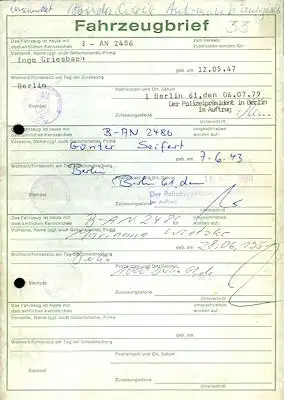 Fahrzeugbrief
33
Das Fahrzeug ist heute mit
dem amtlichen Kennzeichen
B - AN 2486
zum Verkehr
zugelassen worden für:
Vorname, Name (ggf. auch Geburtsname), Firma
Ingo Griesbach
geb. am 12.05.47
Wohnort/Firmensitz am Tag der Zulassung
Berlin
Postleitzahl und Ort, Datum
1 Berlin 61, den 06.07.79
Der Polizeipräsident in Berlin
Im Auftrag
Stempel
Zulassungsstelle
Unterschrift
Das Fahrzeug ist heute mit
dem amtlichen Kennzeichen
B-AN 2486
umgeschrieben
worden auf:
Vorname, Name (ggf. auch Geburtsname), Firma
Günter Seifert
geb. am 7.6.43
Wohnort/Firmensitz am Tag der Umschreibung
Berlin
Postleitzahl und Ort, Datum
Berlin 61, den
Stempel
Im Auftrag
Zulassungsstelle
Unterschrift
Das Fahrzeug ist heute mit
dem amtlichen Kennzeichen
B-AN 2486
umgeschrieben
worden auf:
Vorname, Name (ggf. auch Geburtsname), Firma
Marianne
geb. am 28.06.
Wohnort/Firmensitz am Tag der Umschreibung
Postleitzahl und Ort, Datum
Stempel
Zulassungsstelle
Unterschrift
Das Fahrzeug ist heute mit
dem amtlichen Kennzeichen
umgeschrieben
worden auf:
Vorname, Name (ggf. auch Geburtsname), Firma
geb. am
Wohnort/Firmensitz am Tag der Umschreibung
Postleitzahl und Ort, Datum
Stempel
Zulassungsstelle
Unterschrift